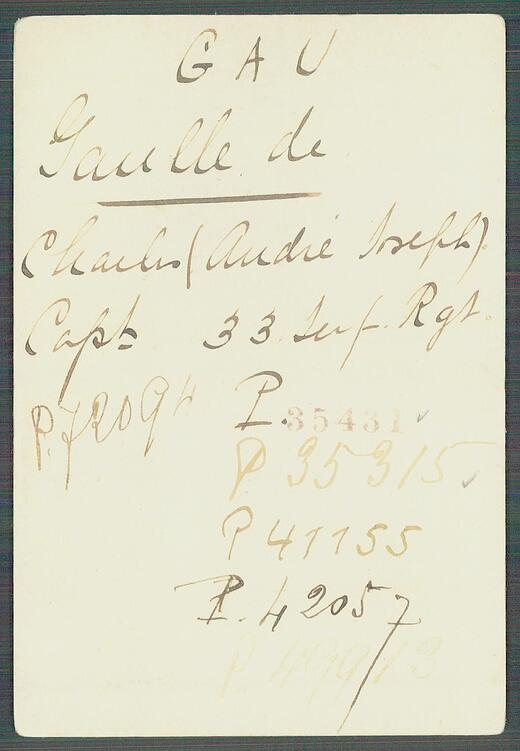 GAU
Gaulle de
Charles (André Joseph).
Capt 33. Inf. Rgt.
P. 72094 P. 35431
P 35315
P 41155
P. 42057
P 49913